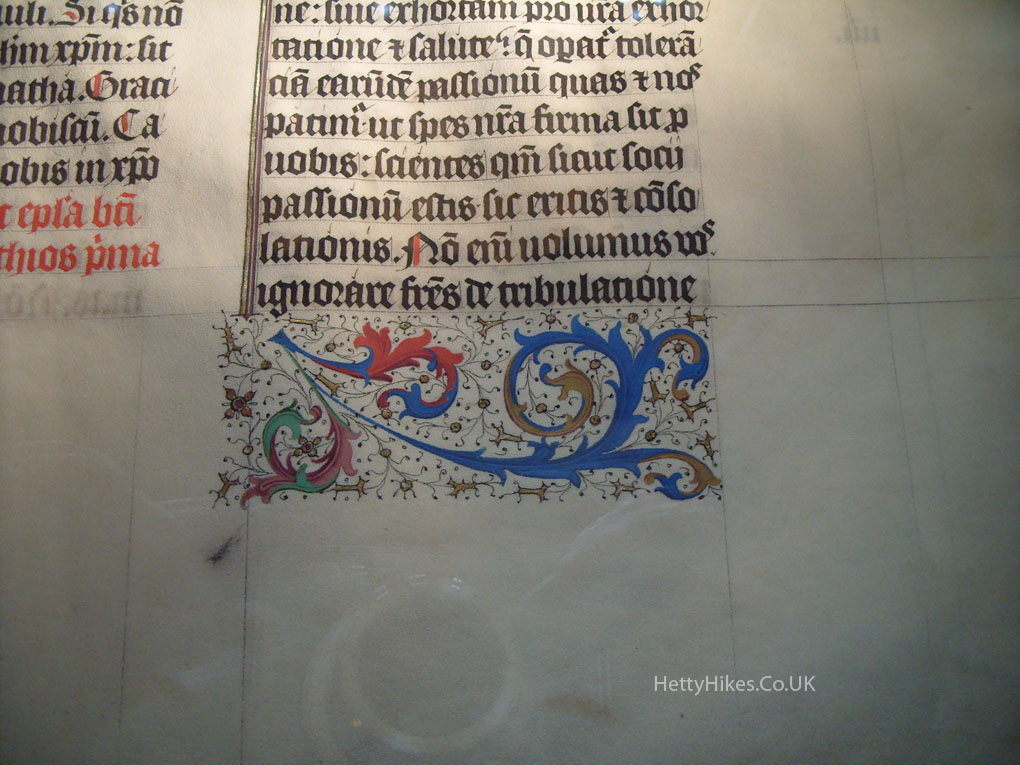 uli. Si q̄s nō
dm̄ xp̄m: sit
natha. Graci
nobiscū. Ca
obis in xp̄o
t ep̄la bt̄i
thios p̄ma
ne: siue exhortam̄ pro ur̄a exhor
tatione ⁊ salute: q̄ opat᷑ tolerā
ciā earūdē passionū quas ⁊ nos
patim᷑ ut spes nr̄a firma sit p̄
uobis: scientes qm̄ sicut socij
passionū estis sic eritis ⁊ cōso
lationis. Nō em̄ uolumus uos
ignorare fr̄es de tribulatione
HettyHikes.Co.UK